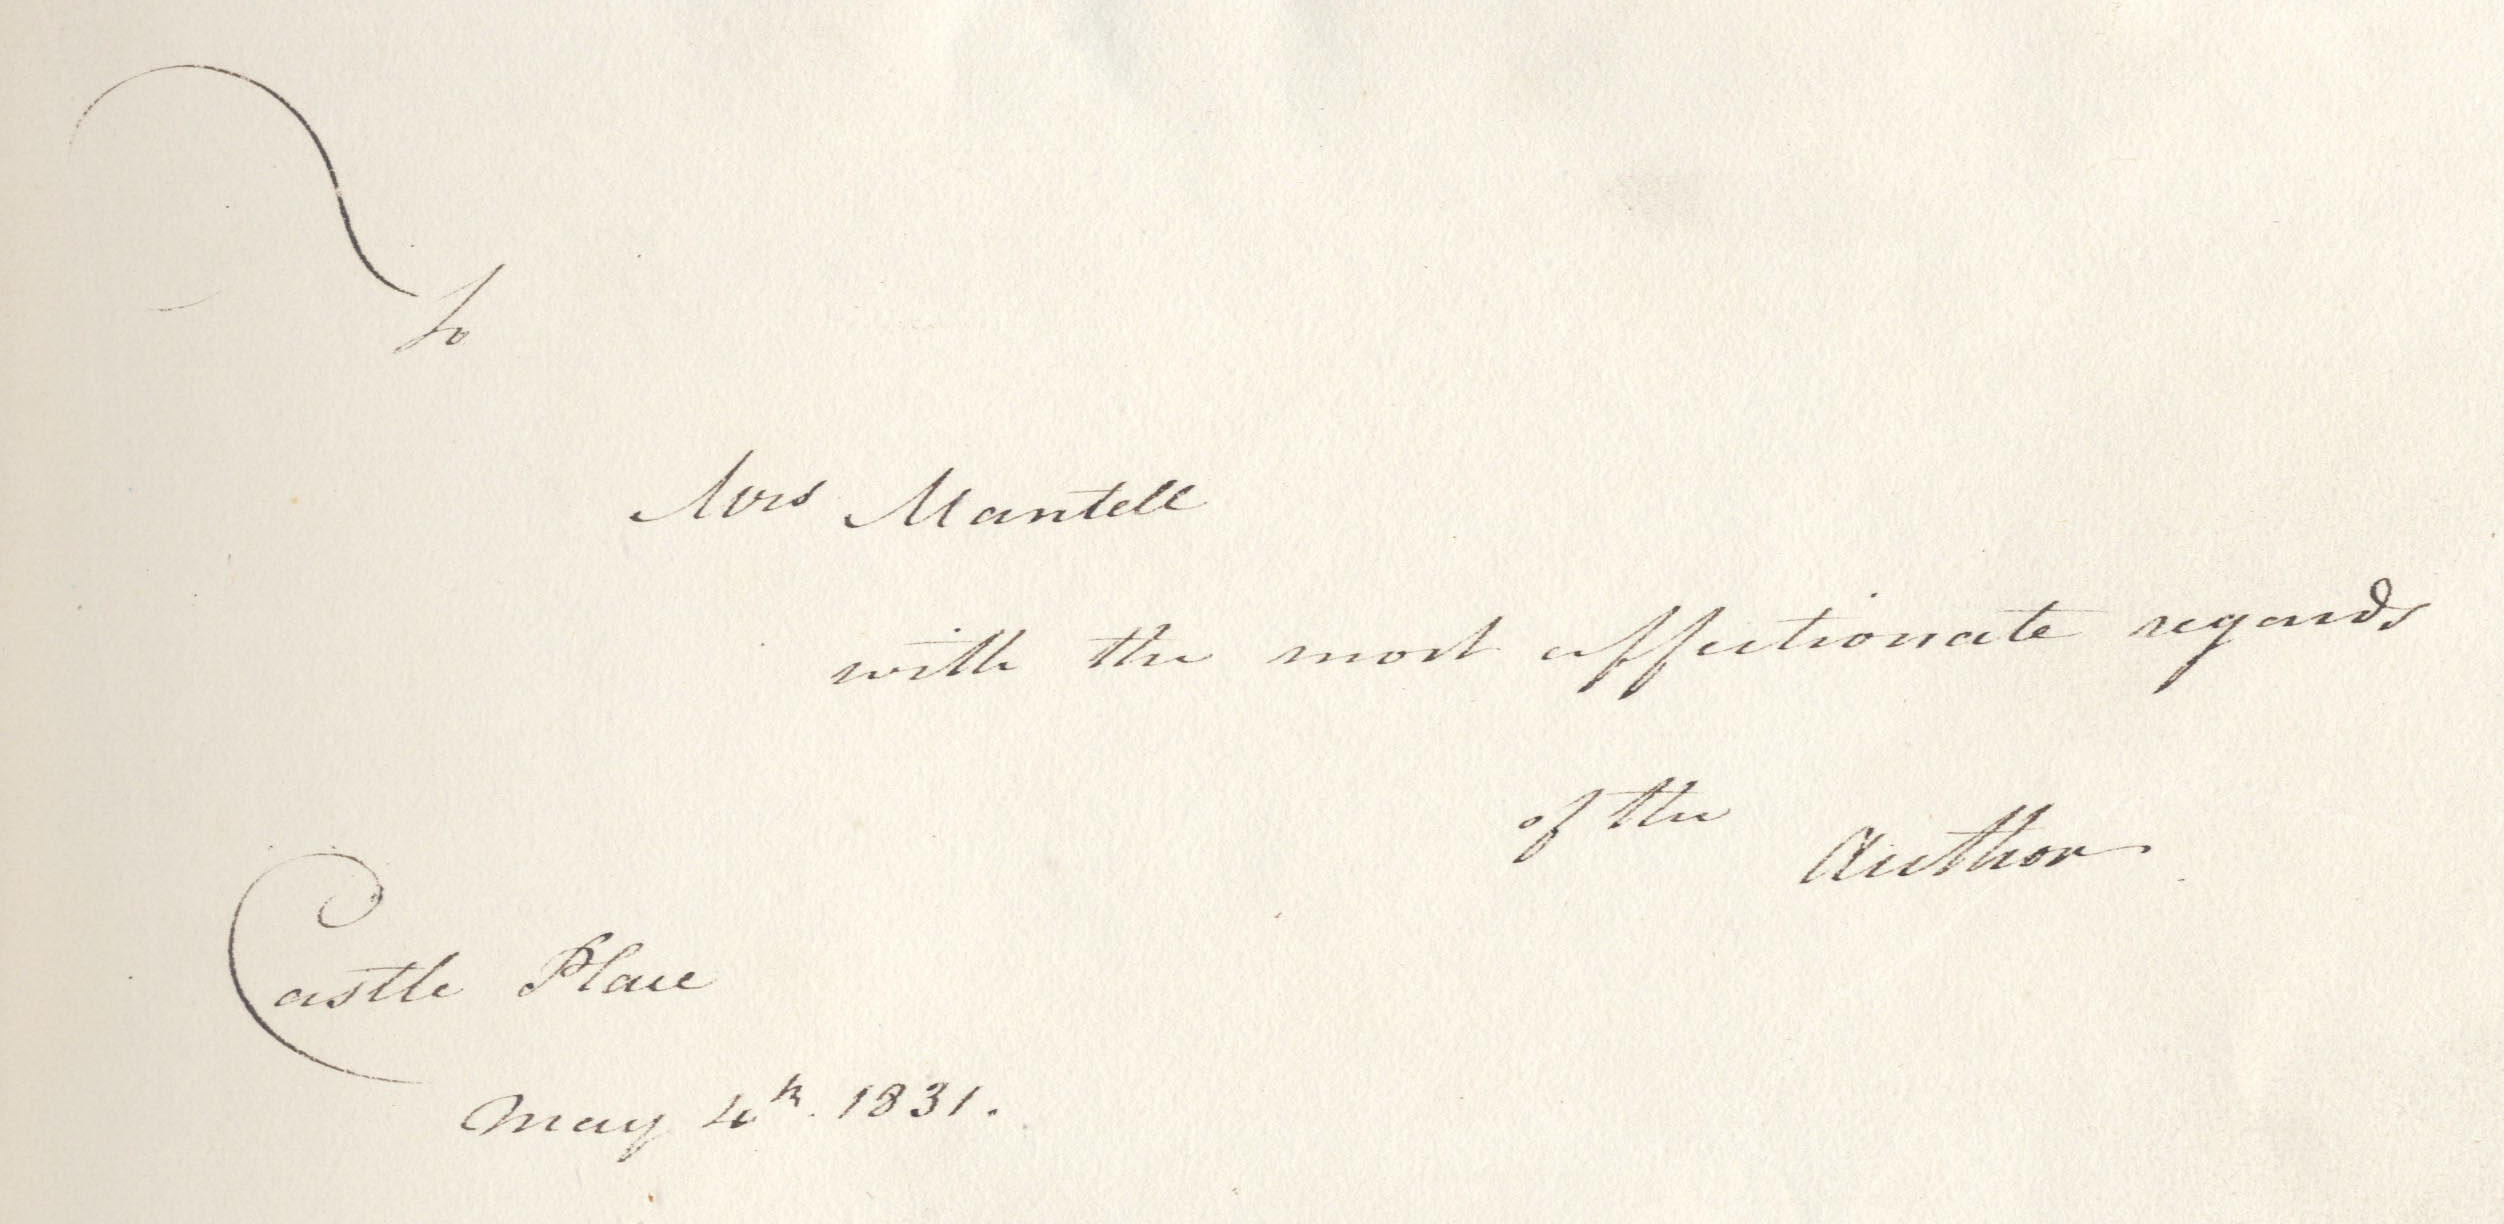 To
Mrs Mantell
with the most affectionate regards
of the Author
Castle Place
May 4th. 1831.